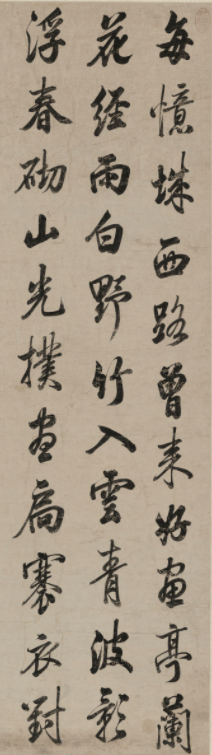 每憶蛛西路曾来好畫亭蘭
花經雨白野竹入雲青波影
浮春砌山光撲畫扃褰衣對